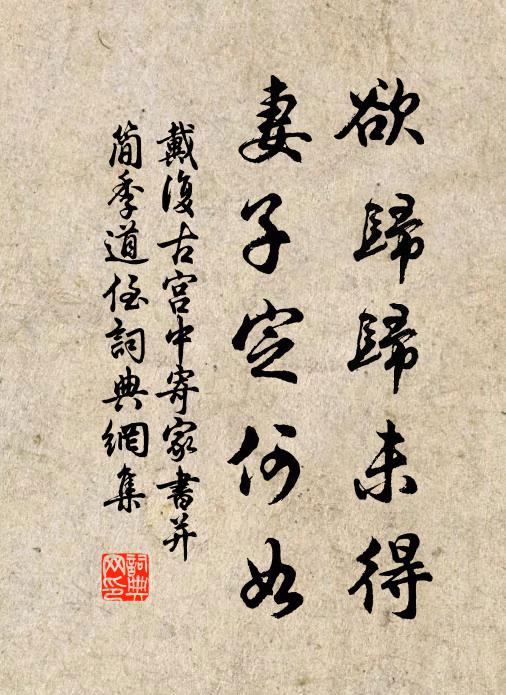 欲歸歸未得
妻子定何如
戴復古宮中寄家書并
簡季道侄詞典網集
詞典网印